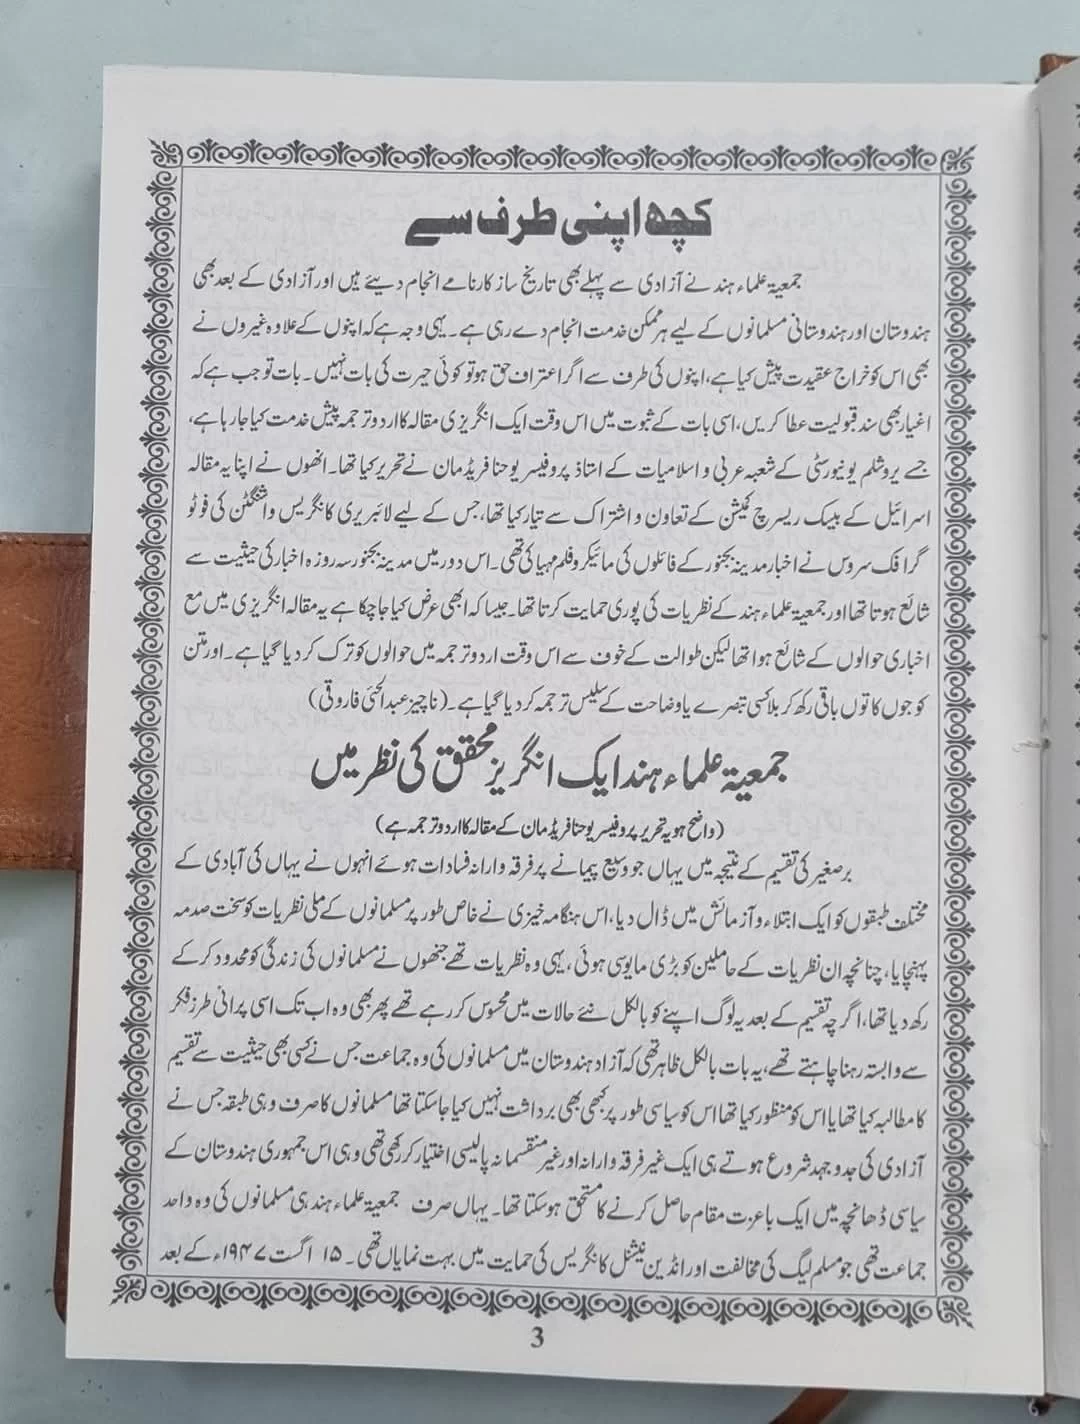 کچھ اپنی طرف سے
جمعیۃ علماء ہند نے آزادی سے پہلے بھی تاریخ ساز کارنامے انجام دیئے ہیں اور آزادی کے بعد بھی
ہندوستان اور ہندوستانی مسلمانوں کے لیے ہر ممکن خدمت انجام دے رہی ہے۔ یہی وجہ ہے کہ اپنوں کے علاوہ غیروں نے
بھی اس کو خراج عقیدت پیش کیا ہے، اپنوں کی طرف سے اگر اعتراف حق ہو تو کوئی حیرت کی بات نہیں۔ بات تو جب ہے کہ
اغیار بھی سند قبولیت عطا کریں، اسی بات کے ثبوت میں اس وقت ایک انگریزی مقالہ کا اردو ترجمہ پیش خدمت کیا جا رہا ہے،
جسے یروشلم یونیورسٹی کے شعبہ عربی و اسلامیات کے استاذ پروفیسر یوحنا فریڈمان نے تحریر کیا تھا۔ انھوں نے اپنا یہ مقالہ
اسرائیل کے بیسک ریسرچ کمیشن کے تعاون و اشتراک سے تیار کیا تھا، جس کے لیے لائبریری کانگریس واشنگٹن کی فوٹو
گرافک سروس نے اخبار مدینہ بجنور کے فائلوں کی مائیکرو فلم مہیا کی تھی۔ اس دور میں مدینہ بجنور سہ روزہ اخبار کی حیثیت سے
شائع ہوتا تھا اور جمعیۃ علماء ہند کے نظریات کی پوری حمایت کرتا تھا۔ جیسا کہ ابھی عرض کیا جا چکا ہے یہ مقالہ انگریزی میں مع
اخباری حوالوں کے شائع ہوا تھا لیکن طوالت کے خوف سے اس وقت اردو ترجمہ میں حوالوں کو ترک کر دیا گیا ہے۔ اور متن
کو جوں کا توں باقی رکھ کر بلا کسی تبصرے یا وضاحت کے سلیس ترجمہ کر دیا گیا ہے۔ (ناچیز عبدالحئی فاروقی)
جمعیۃ علماء ہند ایک انگریز محقق کی نظر میں
(واضح ہو یہ تحریر پروفیسر یوحنا فریڈمان کے مقالہ کا اردو ترجمہ ہے)
برصغیر کی تقسیم کے نتیجہ میں یہاں جو وسیع پیمانے پر فرقہ وارانہ فسادات ہوئے انہوں نے یہاں کی آبادی کے
مختلف طبقوں کو ایک ابتلاء و آزمائش میں ڈال دیا، اس ہنگامہ خیزی نے خاص طور پر مسلمانوں کے ملی نظریات کو سخت صدمہ
پہنچایا، چنانچہ ان نظریات کے حاملین کو بڑی مایوسی ہوئی، یہی وہ نظریات تھے جنھوں نے مسلمانوں کی زندگی کو محدود کر کے
رکھ دیا تھا، اگر چہ تقسیم کے بعد یہ لوگ اپنے کو بالکل نئے حالات میں محسوس کر رہے تھے پھر بھی وہ اب تک اسی پرانی طرز فکر
سے وابستہ رہنا چاہتے تھے، یہ بات بالکل ظاہر تھی کہ آزاد ہندوستان میں مسلمانوں کی وہ جماعت جس نے کسی بھی حیثیت سے تقسیم
کا مطالبہ کیا تھا یا اس کو منظور کیا تھا اس کو سیاسی طور پر کبھی بھی برداشت نہیں کیا جا سکتا تھا مسلمانوں کا صرف وہی طبقہ جس نے
آزادی کی جدوجہد شروع ہوتے ہی ایک غیر فرقہ وارانہ اور غیر منقسمانہ پالیسی اختیار کر رکھی تھی وہی اس جمہوری ہندوستان کے
سیاسی ڈھانچہ میں ایک با عزت مقام حاصل کرنے کا مستحق ہو سکتا تھا۔ یہاں صرف جمعیۃ علماء ہند ہی مسلمانوں کی وہ واحد
جماعت تھی جو مسلم لیگ کی مخالفت اور انڈین نیشنل کانگریس کی حمایت میں بہت نمایاں تھی۔ ۱۵ اگست ۱۹۴۷ء کے بعد
3